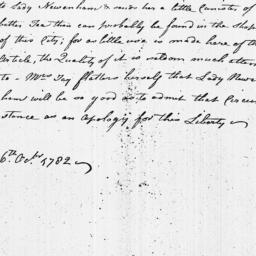 to Lady Newenham & sends her a little Canister of
better Tea than can probably be found in the Shops
of this City; for as little use is made here of the
Article, the Quality of it is seldom much attended
to - Mrs. Jay flatters herself that Lady Newen
ham will be so good as to admit that Circum
stance as an Apology for this Liberty
6th. Octbr. 1782